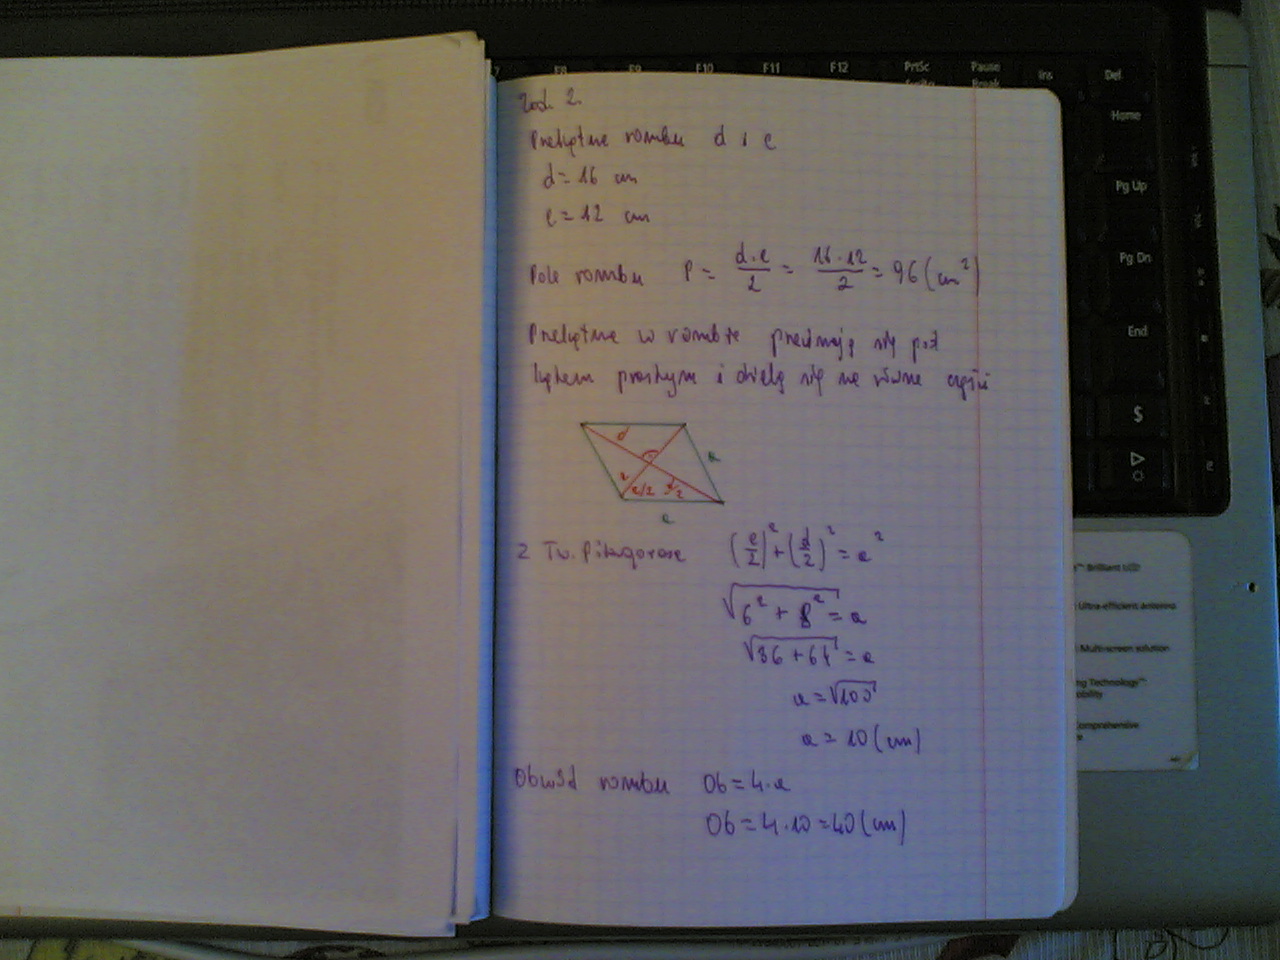 F8 F9 F10 F11 F12 PrtSc Pause Ins Del
Break
Home
Pg Up
Pg Dn
End
$
Zad. 2.
Przekątne rombu d i e
d = 16 cm
e = 12 cm
Pole rombu P = d·e/2 = 16·12/2 = 96 (cm²)
Przekątne w rombie przecinają się pod
kątem prostym i dzielą się na równe części
d
a
e
e/2 d/2
a
Z Tw. Pitagorasa (e/2)² + (d/2)² = a²
√(6² + 8²) = a
√(36 + 64) = a
a = √100
a = 10 (cm)
Obwód rombu Ob = 4·a
Ob = 4·10 = 40 (cm)
Brilliant LCD
Ultra-efficient antenna
Multi-screen solution
ng Technology™
obility
omprehensive